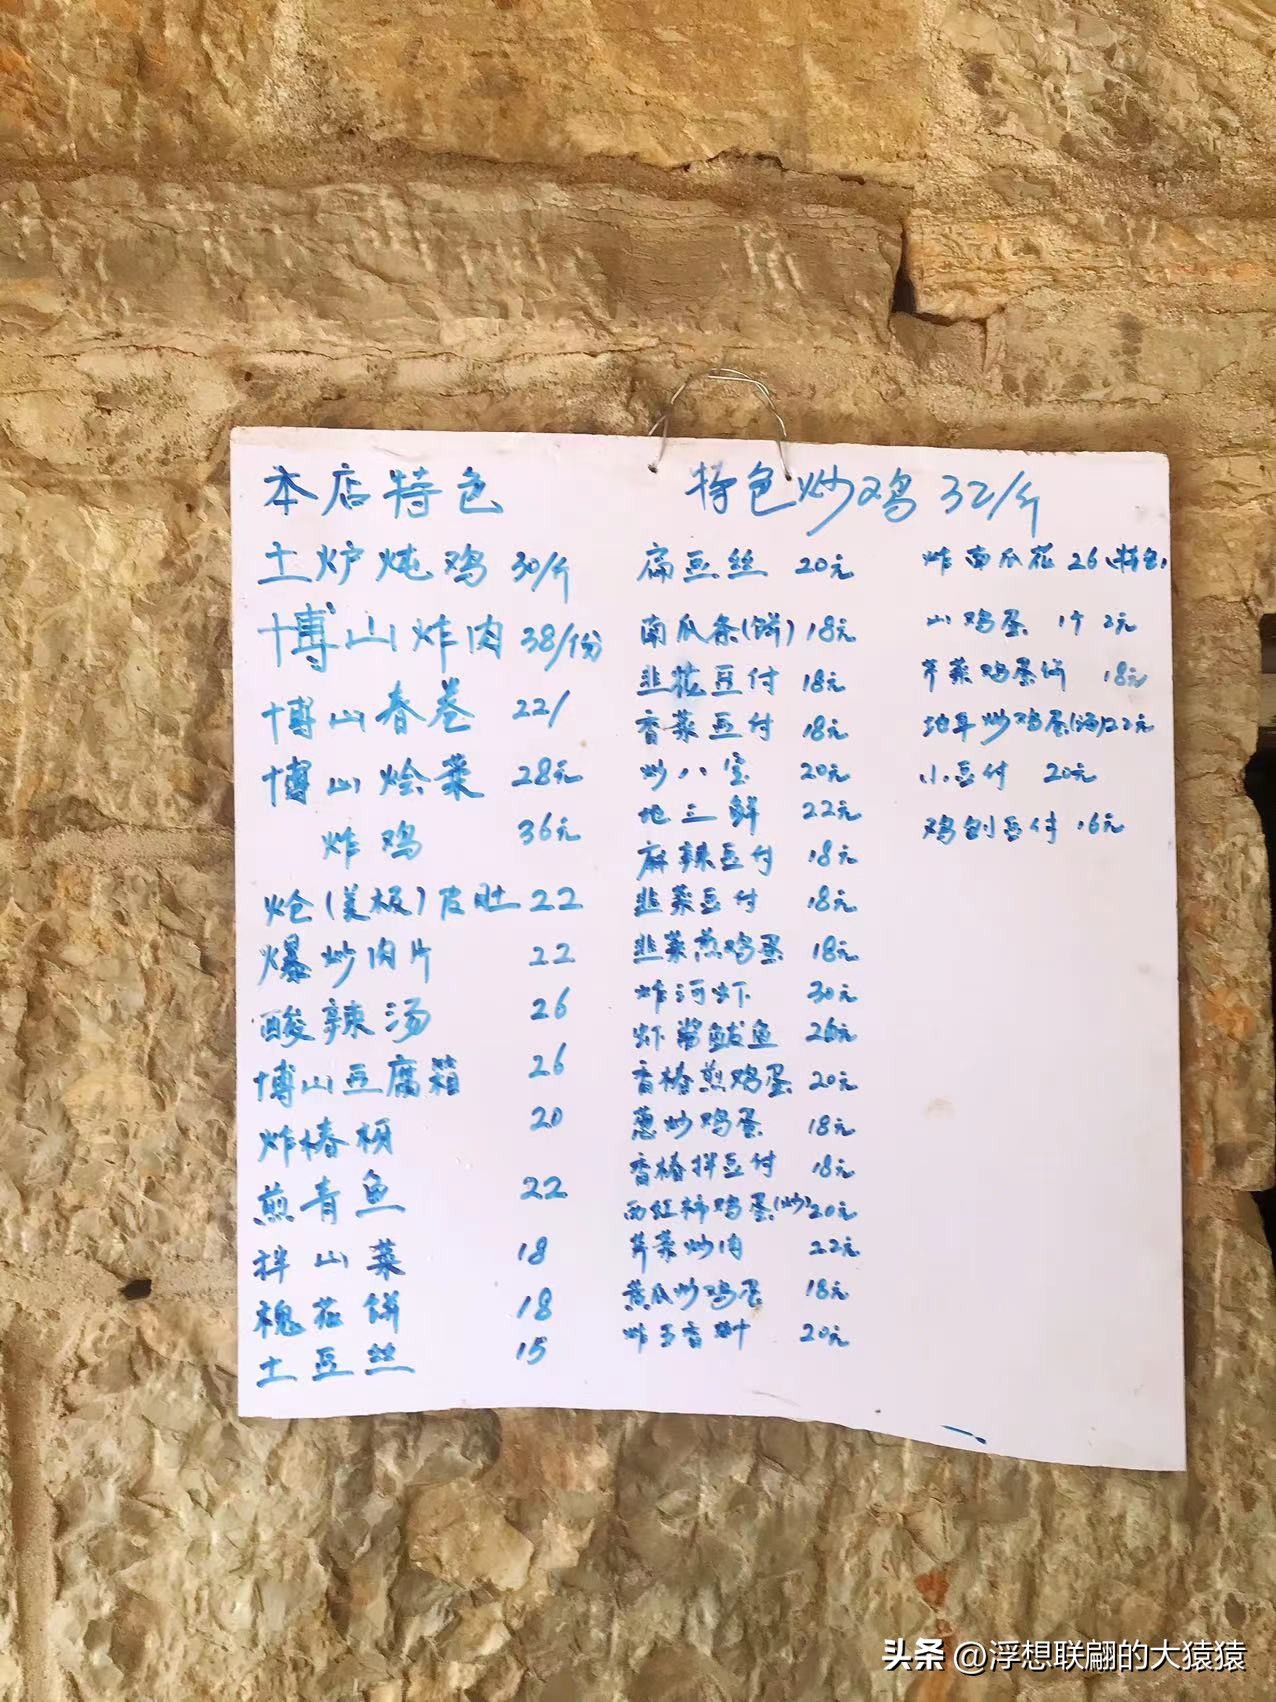 本店特色
特色炒鸡 32/斤
土炉炖鸡 30/斤
博山炸肉 38/份
博山春卷 22/
博山烩菜 28元
炸鸡 36元
炝(美极)皮肚 22
爆炒肉片 22
酸辣汤 26
博山豆腐箱 26
炸椿 20
煎青鱼 22
拌山菜 18
槐花饼 18
土豆丝 15
扁豆丝 20元
南瓜条(饼) 18元
韭花豆付 18元
香菜豆付 18元
炒八宝 20元
地三鲜 22元
麻辣豆付 18元
韭菜豆付 18元
韭菜煎鸡蛋 18元
炸河虾 30元
虾酱鲅鱼 26元
香椿煎鸡蛋 20元
葱炒鸡蛋 18元
香椿拌豆付 18元
西红柿鸡蛋(炒) 20元
芹菜炒肉 22元
黄瓜炒鸡蛋 18元
炸香叶 20元
炸南瓜花 26(特色)
山鸡蛋 1个 2元
芹菜鸡蛋饼 18元
炒鸡蛋(汤) 22元
小豆付 20元
鸡刨豆付 16元
头条 @浮想联翩的大猿猿